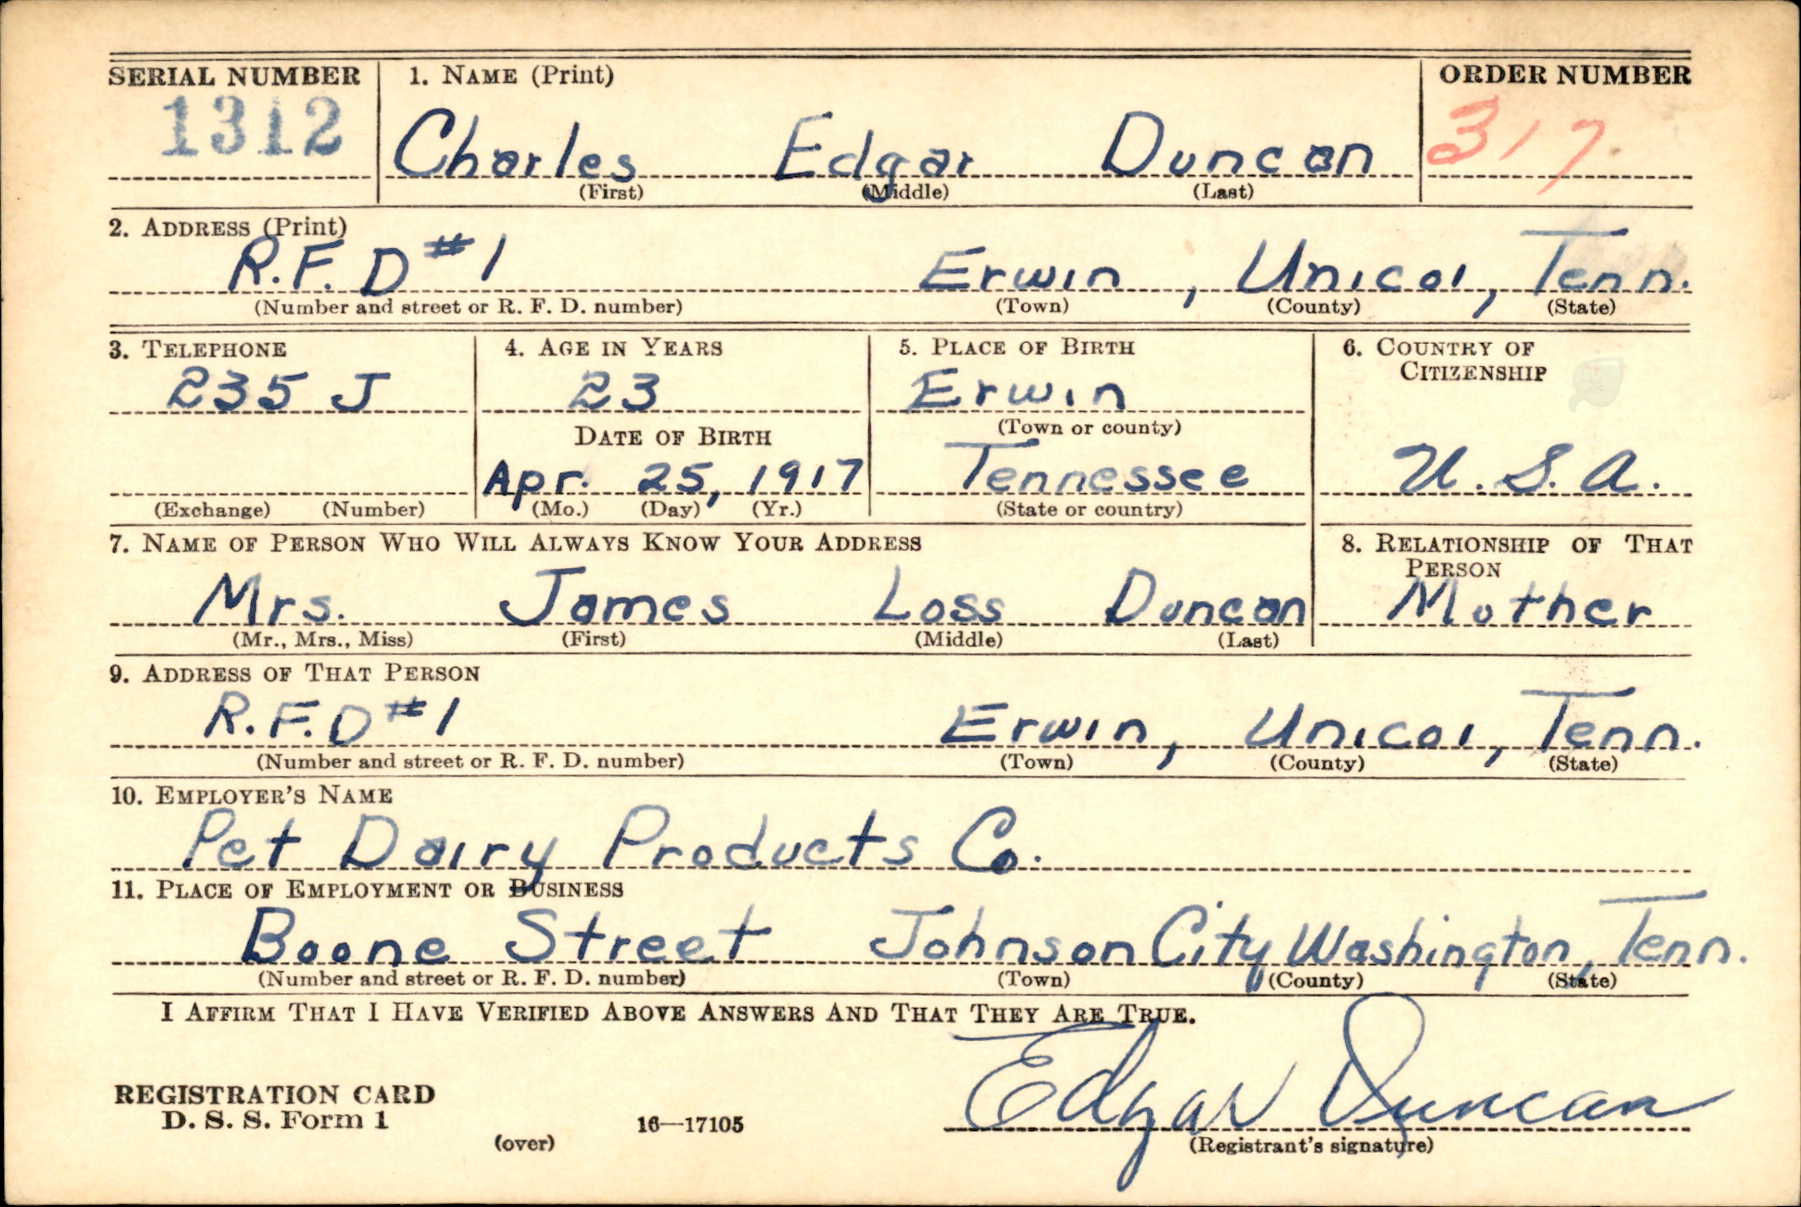 SERIAL NUMBER 1. NAME (Print) ORDER NUMBER
1312 Charles Edgar Duncan 317
(First) (Middle) (Last)
2. ADDRESS (Print)
R.F.D #1 Erwin, Unicoi, Tenn.
(Number and street or R. F. D. number) (Town) (County) (State)
3. TELEPHONE 4. AGE IN YEARS 5. PLACE OF BIRTH 6. COUNTRY OF
CITIZENSHIP
235 J 23 Erwin
DATE OF BIRTH (Town or county)
Apr. 25, 1917 Tennessee U.S.A.
(Exchange) (Number) (Mo.) (Day) (Yr.) (State or country)
7. NAME OF PERSON WHO WILL ALWAYS KNOW YOUR ADDRESS 8. RELATIONSHIP OF THAT
PERSON
Mrs. James Loss Duncan Mother
(Mr., Mrs., Miss) (First) (Middle) (Last)
9. ADDRESS OF THAT PERSON
R.F.D #1 Erwin, Unicoi, Tenn.
(Number and street or R. F. D. number) (Town) (County) (State)
10. EMPLOYER'S NAME
Pet Dairy Products Co.
11. PLACE OF EMPLOYMENT OR BUSINESS
Boone Street Johnson City Washington, Tenn.
(Number and street or R. F. D. number) (Town) (County) (State)
I AFFIRM THAT I HAVE VERIFIED ABOVE ANSWERS AND THAT THEY ARE TRUE.
Edgar Duncan
REGISTRATION CARD
D. S. S. Form 1 16—17105
(over) (Registrant's signature)